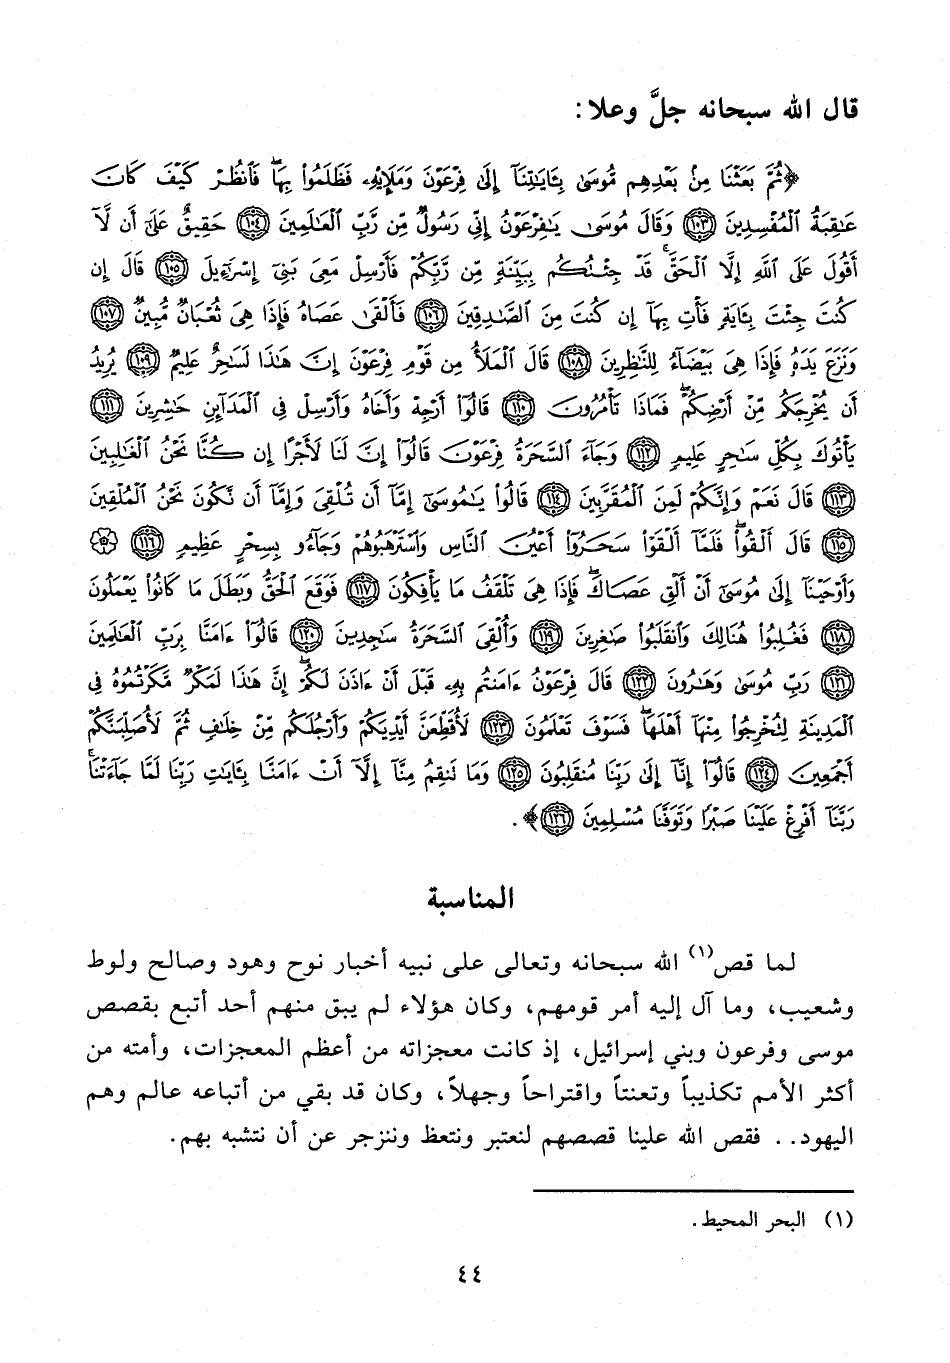 قال الله سبحانه جلَّ وعلا:
﴿ثُمَّ بَعَثْنَا مِنۢ بَعْدِهِم مُّوسَىٰ بِـَٔايَـٰتِنَآ إِلَىٰ فِرْعَوْنَ وَمَلَإِي۟هِۦ فَظَلَمُوا۟ بِهَا ۖ فَٱنظُرْ كَيْفَ كَانَ
عَـٰقِبَةُ ٱلْمُفْسِدِينَ ﴿١٠٣﴾ وَقَالَ مُوسَىٰ يَـٰفِرْعَوْنُ إِنِّى رَسُولٌ مِّن رَّبِّ ٱلْعَـٰلَمِينَ ﴿١٠٤﴾ حَقِيقٌ عَلَىٰٓ أَن لَّآ
أَقُولَ عَلَى ٱللَّهِ إِلَّا ٱلْحَقَّ ۚ قَدْ جِئْتُكُم بِبَيِّنَةٍ مِّن رَّبِّكُمْ فَأَرْسِلْ مَعِىَ بَنِىٓ إِسْرَٰٓءِيلَ ﴿١٠٥﴾ قَالَ إِن
كُنتَ جِئْتَ بِـَٔايَةٍ فَأْتِ بِهَآ إِن كُنتَ مِنَ ٱلصَّـٰدِقِينَ ﴿١٠٦﴾ فَأَلْقَىٰ عَصَاهُ فَإِذَا هِىَ ثُعْبَانٌ مُّبِينٌ ﴿١٠٧﴾
وَنَزَعَ يَدَهُۥ فَإِذَا هِىَ بَيْضَآءُ لِلنَّـٰظِرِينَ ﴿١٠٨﴾ قَالَ ٱلْمَلَأُ مِن قَوْمِ فِرْعَوْنَ إِنَّ هَـٰذَا لَسَـٰحِرٌ عَلِيمٌ ﴿١٠٩﴾ يُرِيدُ
أَن يُخْرِجَكُم مِّنْ أَرْضِكُمْ ۖ فَمَاذَا تَأْمُرُونَ ﴿١١٠﴾ قَالُوٓا۟ أَرْجِهْ وَأَخَاهُ وَأَرْسِلْ فِى ٱلْمَدَآئِنِ حَـٰشِرِينَ ﴿١١١﴾
يَأْتُوكَ بِكُلِّ سَـٰحِرٍ عَلِيمٍ ﴿١١٢﴾ وَجَآءَ ٱلسَّحَرَةُ فِرْعَوْنَ قَالُوٓا۟ إِنَّ لَنَا لَأَجْرًا إِن كُنَّا نَحْنُ ٱلْغَـٰلِبِينَ
﴿١١٣﴾ قَالَ نَعَمْ وَإِنَّكُمْ لَمِنَ ٱلْمُقَرَّبِينَ ﴿١١٤﴾ قَالُوا۟ يَـٰمُوسَىٰٓ إِمَّآ أَن تُلْقِىَ وَإِمَّآ أَن نَّكُونَ نَحْنُ ٱلْمُلْقِينَ
﴿١١٥﴾ قَالَ أَلْقُوا۟ ۖ فَلَمَّآ أَلْقَوْا۟ سَحَرُوٓا۟ أَعْيُنَ ٱلنَّاسِ وَٱسْتَرْهَبُوهُمْ وَجَآءُو بِسِحْرٍ عَظِيمٍ ﴿١١٦﴾ ۞
وَأَوْحَيْنَآ إِلَىٰ مُوسَىٰٓ أَنْ أَلْقِ عَصَاكَ ۖ فَإِذَا هِىَ تَلْقَفُ مَا يَأْفِكُونَ ﴿١١٧﴾ فَوَقَعَ ٱلْحَقُّ وَبَطَلَ مَا كَانُوا۟ يَعْمَلُونَ
﴿١١٨﴾ فَغُلِبُوا۟ هُنَالِكَ وَٱنقَلَبُوا۟ صَـٰغِرِينَ ﴿١١٩﴾ وَأُلْقِىَ ٱلسَّحَرَةُ سَـٰجِدِينَ ﴿١٢٠﴾ قَالُوٓا۟ ءَامَنَّا بِرَبِّ ٱلْعَـٰلَمِينَ
﴿١٢١﴾ رَبِّ مُوسَىٰ وَهَـٰرُونَ ﴿١٢٢﴾ قَالَ فِرْعَوْنُ ءَامَنتُم بِهِۦ قَبْلَ أَنْ ءَاذَنَ لَكُمْ ۖ إِنَّ هَـٰذَا لَمَكْرٌ مَّكَرْتُمُوهُ فِى
ٱلْمَدِينَةِ لِتُخْرِجُوا۟ مِنْهَآ أَهْلَهَا ۖ فَسَوْفَ تَعْلَمُونَ ﴿١٢٣﴾ لَأُقَطِّعَنَّ أَيْدِيَكُمْ وَأَرْجُلَكُم مِّنْ خِلَـٰفٍ ثُمَّ لَأُصَلِّبَنَّكُمْ
أَجْمَعِينَ ﴿١٢٤﴾ قَالُوٓا۟ إِنَّآ إِلَىٰ رَبِّنَا مُنقَلِبُونَ ﴿١٢٥﴾ وَمَا تَنقِمُ مِنَّآ إِلَّآ أَنْ ءَامَنَّا بِـَٔايَـٰتِ رَبِّنَا لَمَّا جَآءَتْنَا ۚ
رَبَّنَآ أَفْرِغْ عَلَيْنَا صَبْرًا وَتَوَفَّنَا مُسْلِمِينَ ﴿١٢٦﴾﴾.
المناسبة
لما قص(١) الله سبحانه وتعالى على نبيه أخبار نوح وهود وصالح ولوط
وشعيب، وما آل إليه أمر قومهم، وكان هؤلاء لم يبق منهم أحد أتبع بقصص
موسى وفرعون وبني إسرائيل، إذ كانت معجزاته من أعظم المعجزات، وأمته من
أكثر الأمم تكذيباً وتعنتاً واقتراحاً وجهلاً، وكان قد بقي من أتباعه عالم وهم
اليهود.. فقص الله علينا قصصهم لنعتبر ونتعظ وننزجر عن أن نتشبه بهم.
(١) البحر المحيط.
٤٤